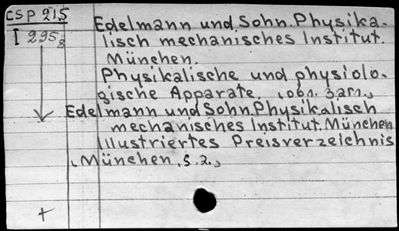 CSP 215
I 2958
Edelmann und Sohn. Physika-
lisch mechanisches Institut.
München.
Physikalische und physiolo-
gische Apparate.
Edelmann und Sohn. Physikalisch
mechanisches Institut. München
Illustriertes Preisverzeichnis
München